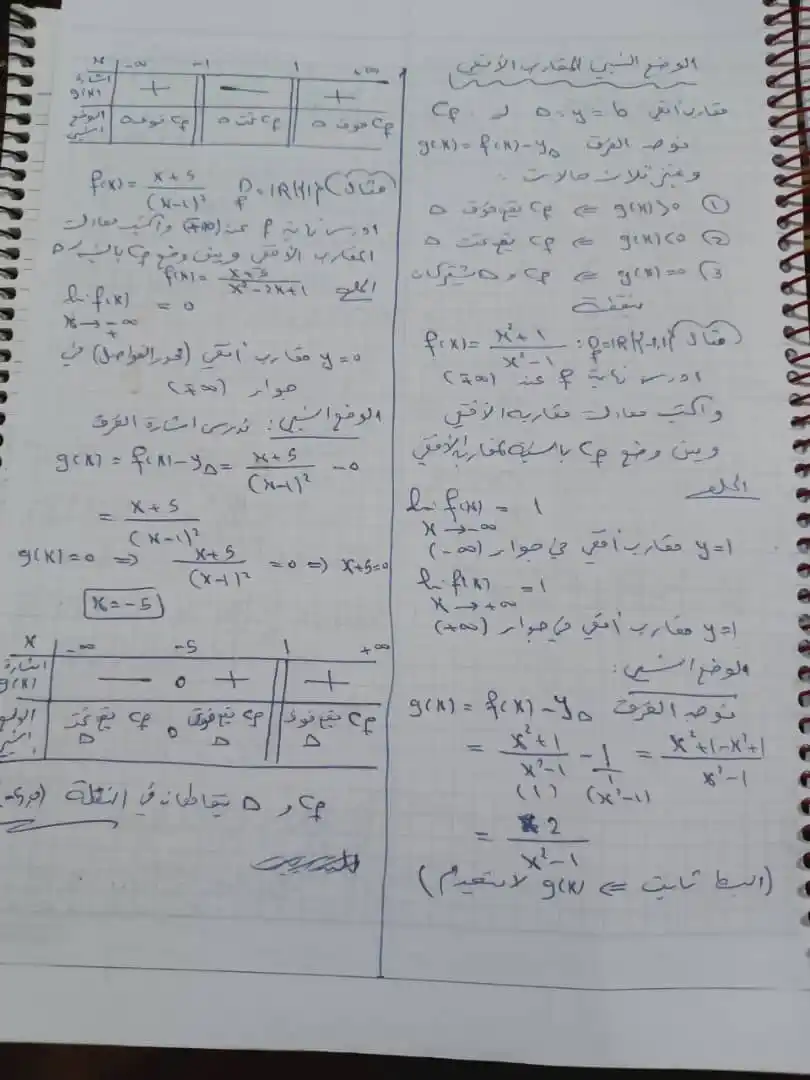 الوضع النسبي للمقارب الأفقي
مقارب أفقي Δ: y = b لـ Cƒ
نوجد الفرق g(x) = f(x) − yΔ
ونميز ثلاث حالات:
① g(x)>0 ⇒ Cƒ يقع فوق Δ
② g(x)<0 ⇒ Cƒ يقع تحت Δ
③ g(x)=0 ⇒ Cƒ و Δ يشتركان
بنقطة
مثال f(x) = (x²+1)/(x²−1) : Dƒ=IR\{-1,1}
ادرس نهاية f عند (∓∞)
واكتب معادلة مقاربه الأفقي
وبين وضع Cƒ بالنسبة لمقاربه الأفقي
الحل:
lim f(x) = 1
x → −∞
y=1 مقارب أفقي في جوار (−∞)
lim f(x) = 1
x → +∞
y=1 مقارب أفقي في جوار (+∞)
الوضع النسبي:
نوجد الفرق g(x) = f(x) − yΔ
= (x²+1)/(x²−1) − 1/1 = (x²+1−x²+1)/(x²−1)
(1) (x²−1)
= 2/(x²−1)
(البسط ثابت ⇒ g(x) لا تنعدم)
x −∞ −1 1 +∞
اشارة g(x) + − +
الوضع النسبي Cƒ فوق Δ Cƒ تحت Δ Cƒ فوق Δ
مثال f(x) = (x+5)/(x−1)² Dƒ=IR\{1}
ادرس نهاية f عند (∓∞) واكتب معادلة
المقارب الأفقي وبين وضع Cƒ بالنسبة لـ Δ
الحل: f(x) = (x+5)/(x²−2x+1)
lim f(x) = 0
x → ∓∞
y=0 مقارب أفقي (محور الفواصل) في
جوار (∓∞)
الوضع النسبي: ندرس اشارة الفرق
g(x) = f(x) − yΔ = (x+5)/(x−1)² − 0
= (x+5)/(x−1)²
g(x)=0 ⇒ (x+5)/(x−1)² = 0 ⇒ x+5=0
x=−5
x −∞ −5 1 +∞
اشارة g(x) − 0 + +
الوضع النسبي Cƒ يقع تحت Δ 0 Cƒ يقع فوق Δ Cƒ يقع فوق Δ
Cƒ و Δ يتقاطعان في النقطة